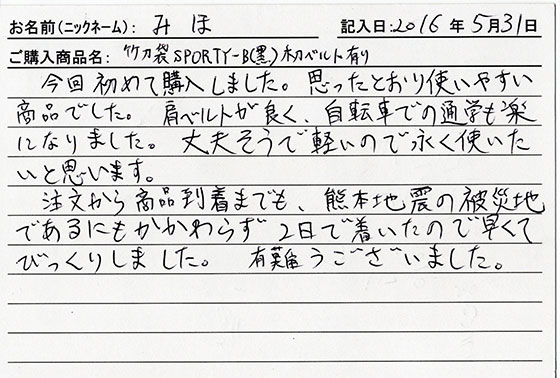 お名前(ニックネーム): みほ 記入日:2016年5月31日
ご購入商品名: 竹刀袋SPORTY-B(黒)ネームベルト有り
今回初めて購入しました。思ったとおり使いやすい
商品でした。肩ベルトが良く、自転車での通学も楽
になりました。大夫そうで軽いので永く使いた
いと思います。
注文から商品到着までも、熊本地震の被災地
であるにもかかわらず2日で着いたので早くて
びっくりしました。有難うございました。